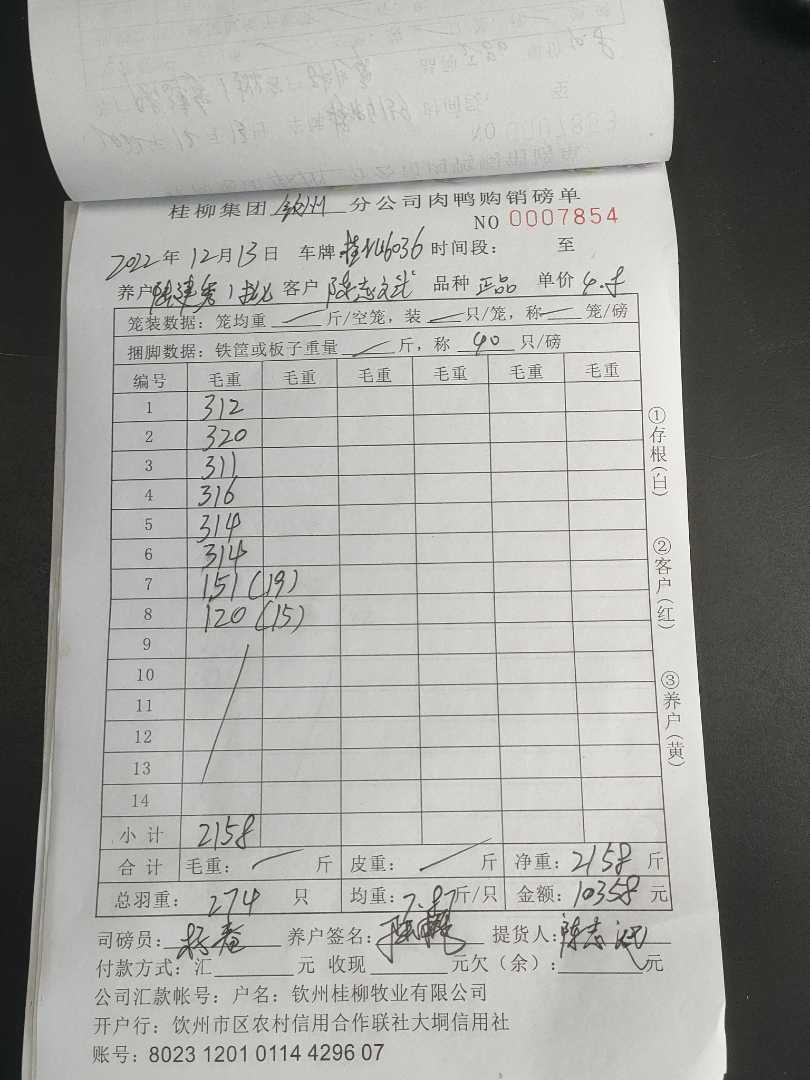 桂柳集团 钦州 分公司肉鸭购销磅单
NO 0007854
2022年12月13日 车牌 桂 6036 时间段: 至
养户 陆建秀1批 客户 陈志 品种 正品 单价 4.8
笼装数据: 笼均重 斤/空笼, 装 只/笼, 称 笼/磅
捆脚数据: 铁筐或板子重量 斤, 称 40 只/磅
编号 毛重 毛重 毛重 毛重 毛重 毛重
1 312
2 320
3 311
4 316
5 314
6 314
7 151(19)
8 120(15)
9
10
11
12
13
14
小计 2158
合计 毛重: 斤 皮重: 斤 净重: 2158 斤
总羽重: 274 只 均重: 7.87 斤/只 金额: 10358 元
司磅员: 养户签名: 提货人: 陈志
付款方式: 汇 元 收现 元欠(余): 元
公司汇款帐号: 户名: 钦州桂柳牧业有限公司
开户行: 饮州市区农村信用合作联社大垌信用社
账号: 8023 1201 0114 4296 07
①存根(白)
②客户(红)
③养户(黄)